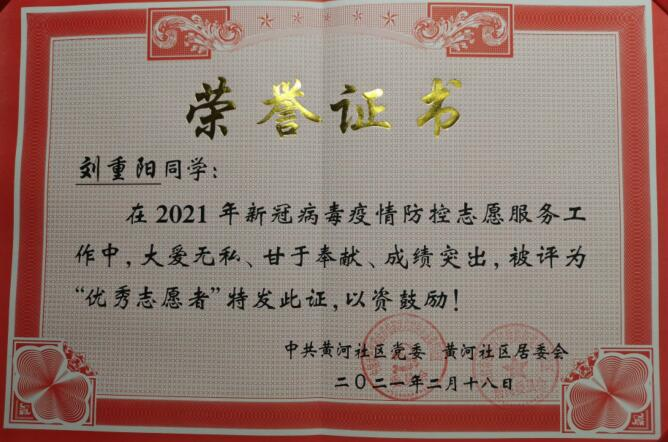 荣誉证书
刘重阳同学：
在2021年新冠病毒疫情防控志愿服务工
作中，大爱无私、甘于奉献、成绩突出，被评为
“优秀志愿者”特发此证，以资鼓励！
中共黄河社区党委 黄河社区居委会
二〇二一年二月十八日